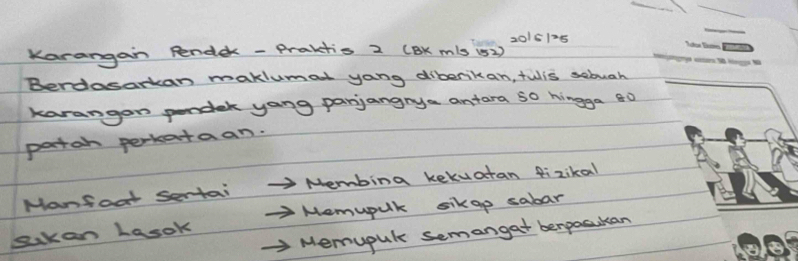 Karangan Pendek - Praktis 2 (BK m/s 152) 20/6/25
Berdasarkan maklumat yang diberikan, tulis sebuah
karangan pendek yang panjangnya antara 50 hingga 80
patah perkataan.
Manfaat Sertai → Membina kekuatan fizikal
sukan Lasak → Memupuk sikap sabar
→ Memupuk semangat berpasukan